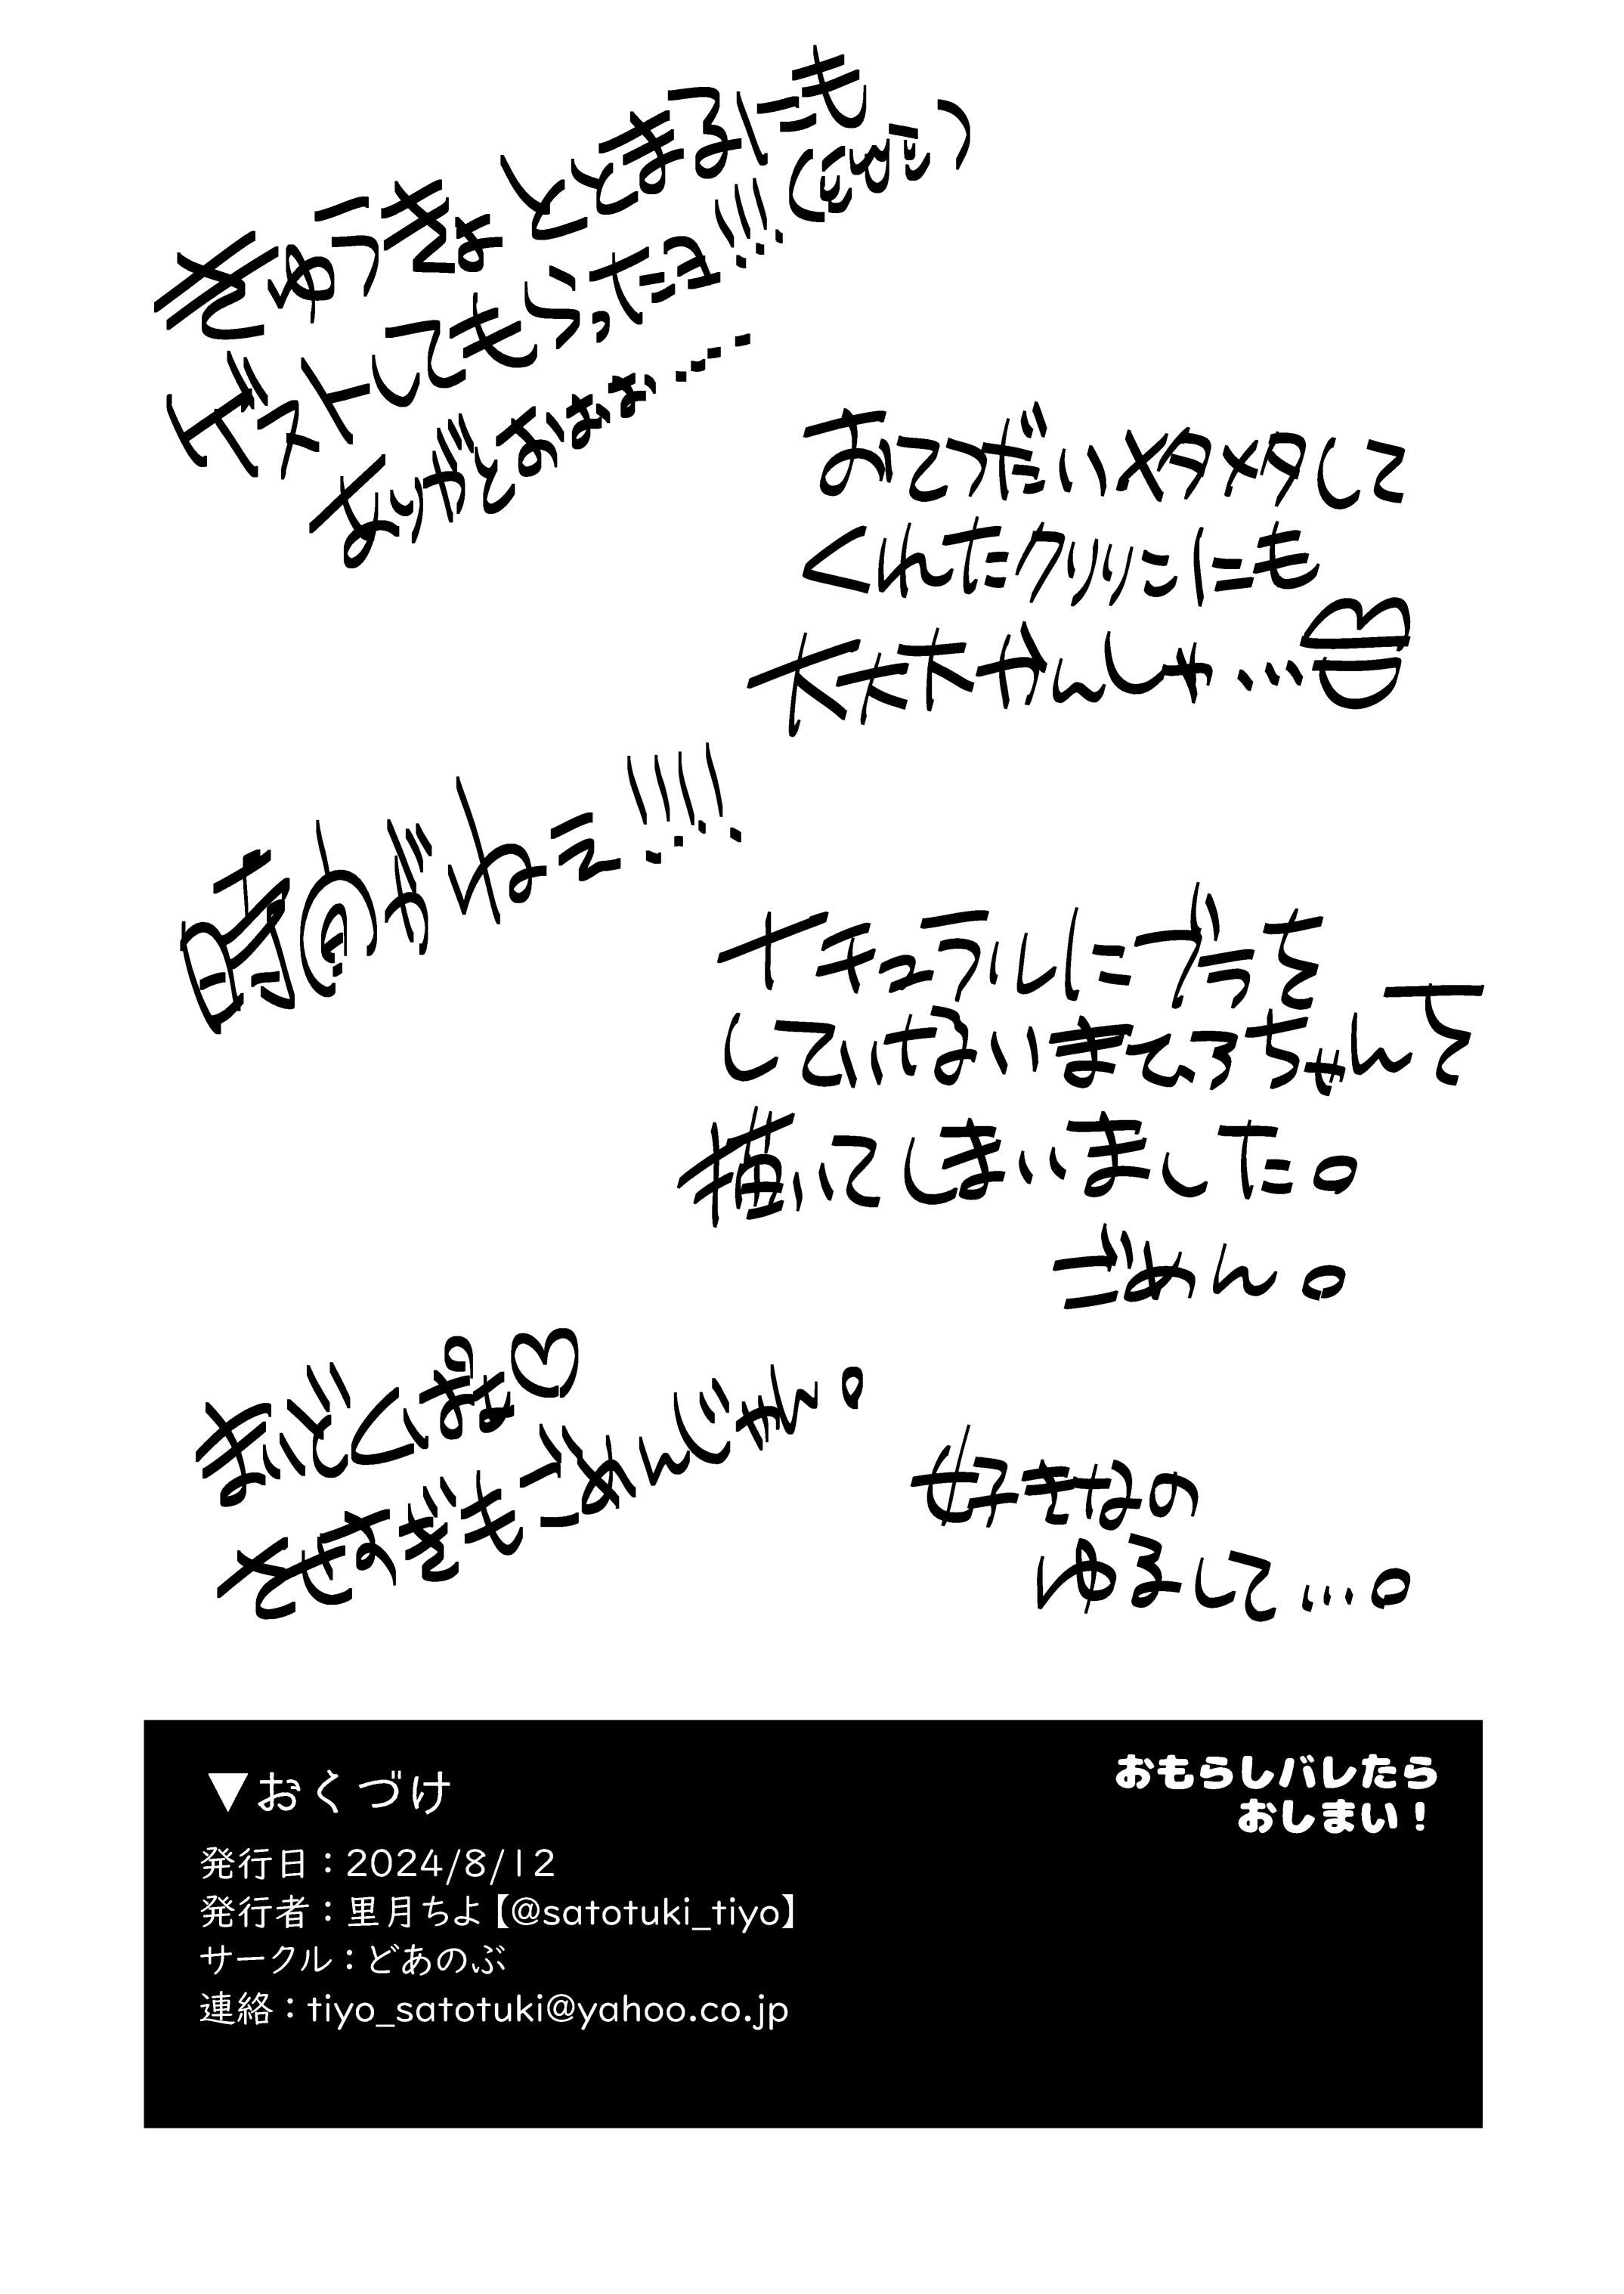 きゅうきょととまるにも
ゲストしてもらったヨ!!!
ありがとおぉぉぉ……
おてつだいメタメタして
くれたクリリこにも
大大大かんしゃ…
時間がねェ!!!!
ナチュラルにブラを
していないまひろちゃんを
描いてしまいました。
ごめん。
まいどくぱぁ♡
させすぎもごめんじゃん。
好きなの
ゆるして…。
おもらしバレたら
おしまい！
▼おくづけ
発行日：2024/8/12
発行者：里月ちよ【@satotuki_tiyo】
サークル：どあのぶ
連絡：tiyo_satotuki@yahoo.co.jp